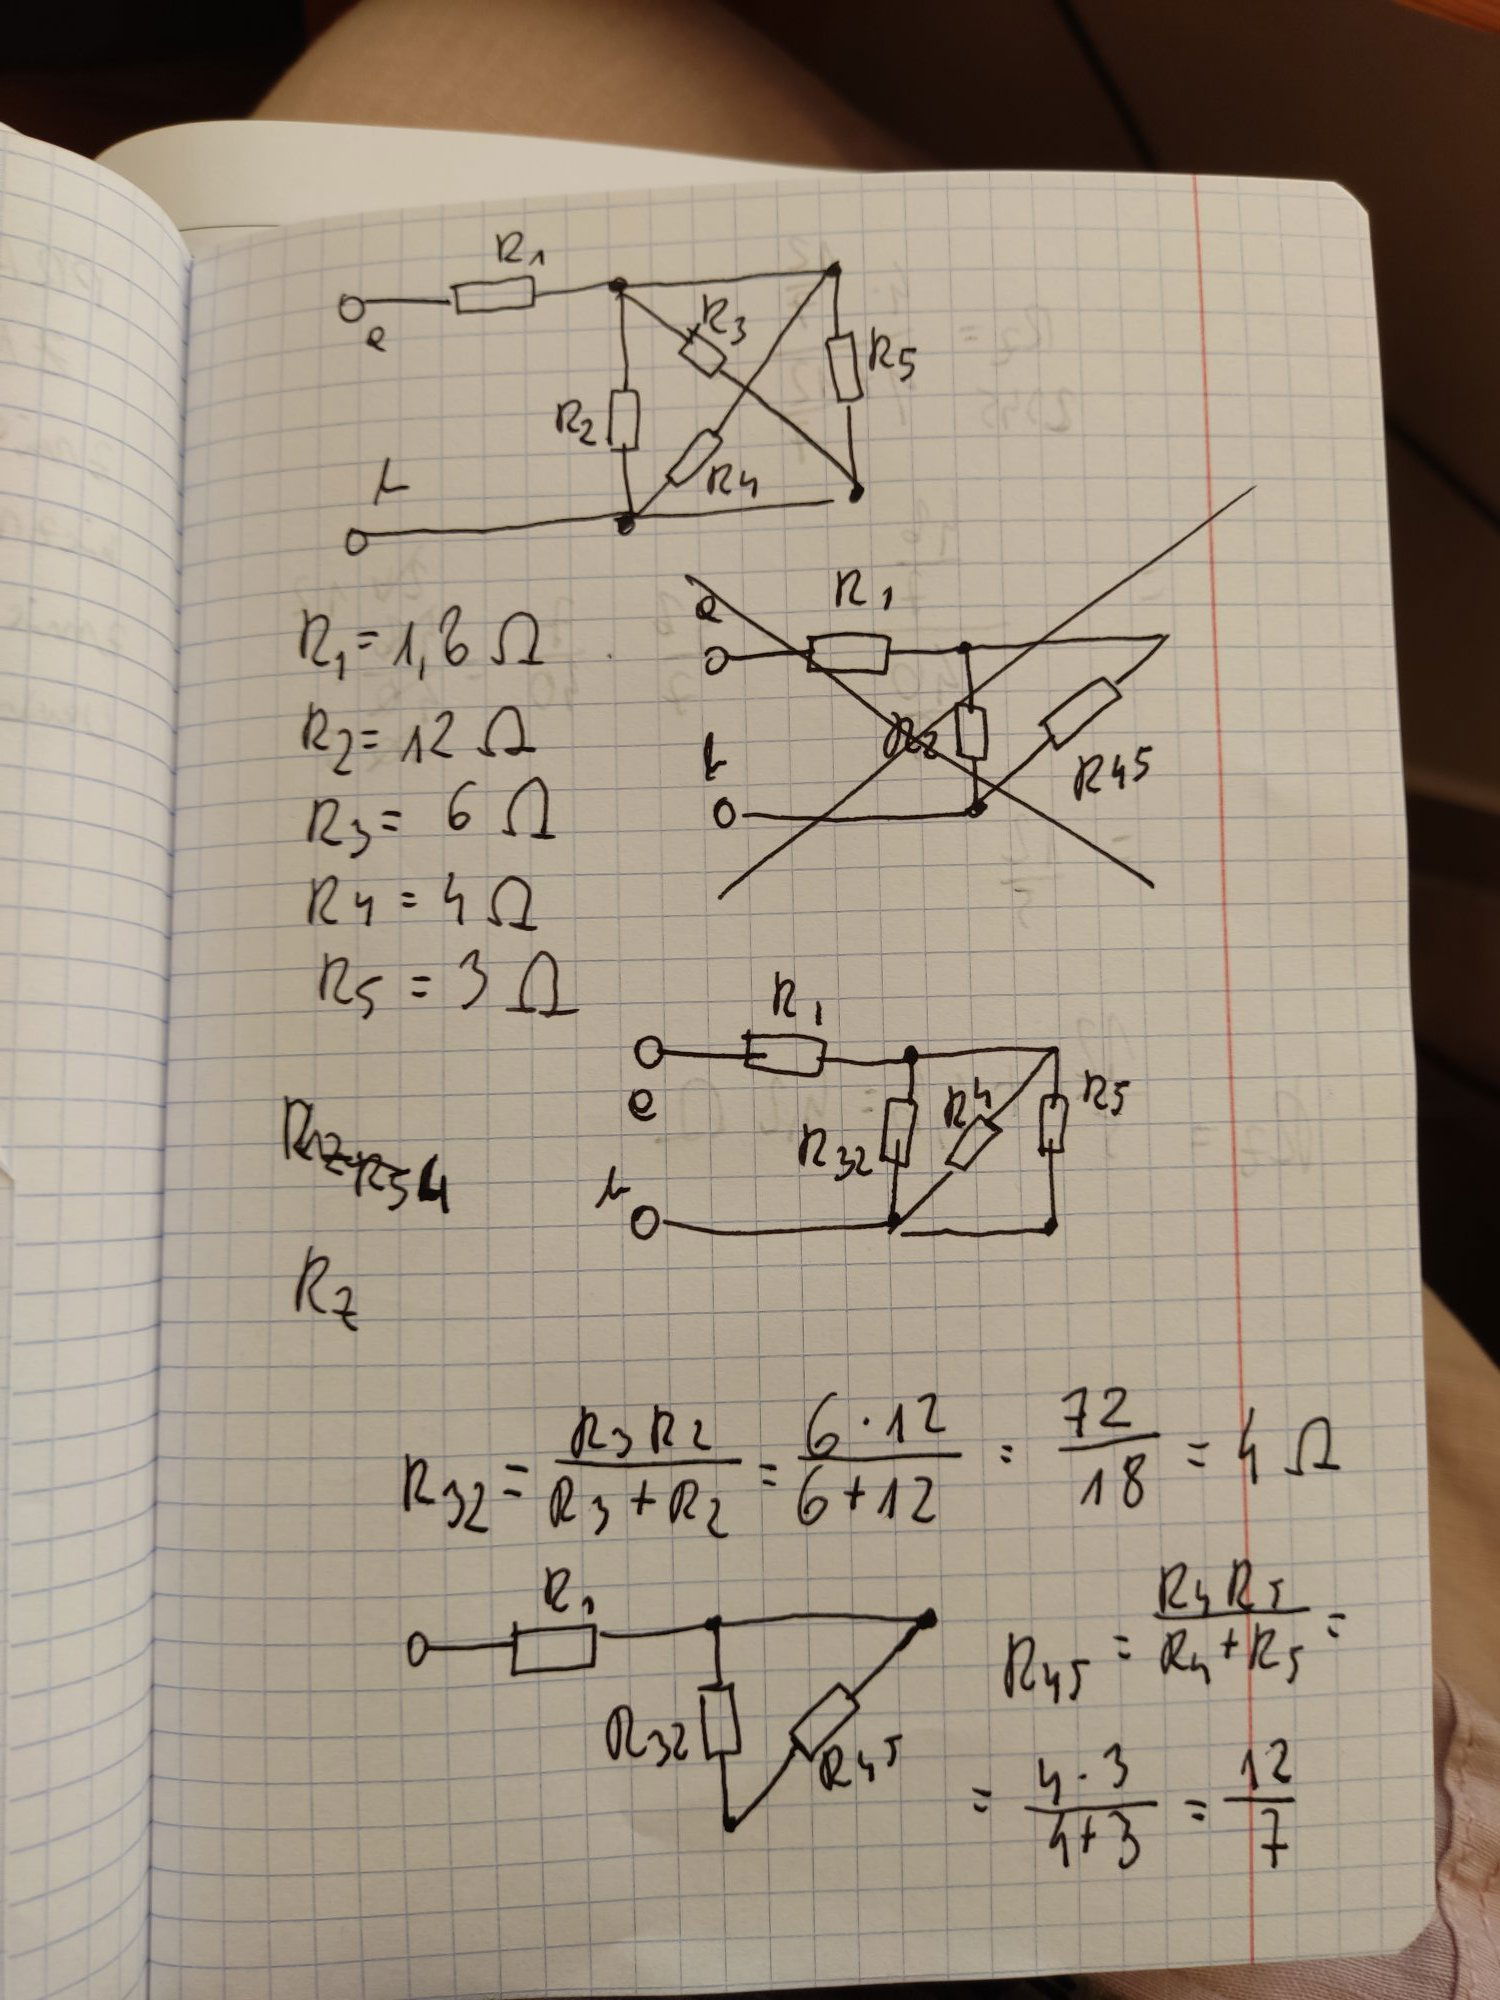 R1
e
R3
R5
R2
R4
R1 = 1,8 Ω
R2 = 12 Ω
R3 = 6 Ω
R4 = 4 Ω
R5 = 3 Ω
e
R1
R2
R45
b
R1
e
R32
R4
R5
Rz
R32 = R3 R2 / R3 + R2 = 6 · 12 / 6 + 12 = 72 / 18 = 4 Ω
R1
R32
R45
R45 = R4 R5 / R4 + R5 =
= 4 · 3 / 4 + 3 = 12 / 7